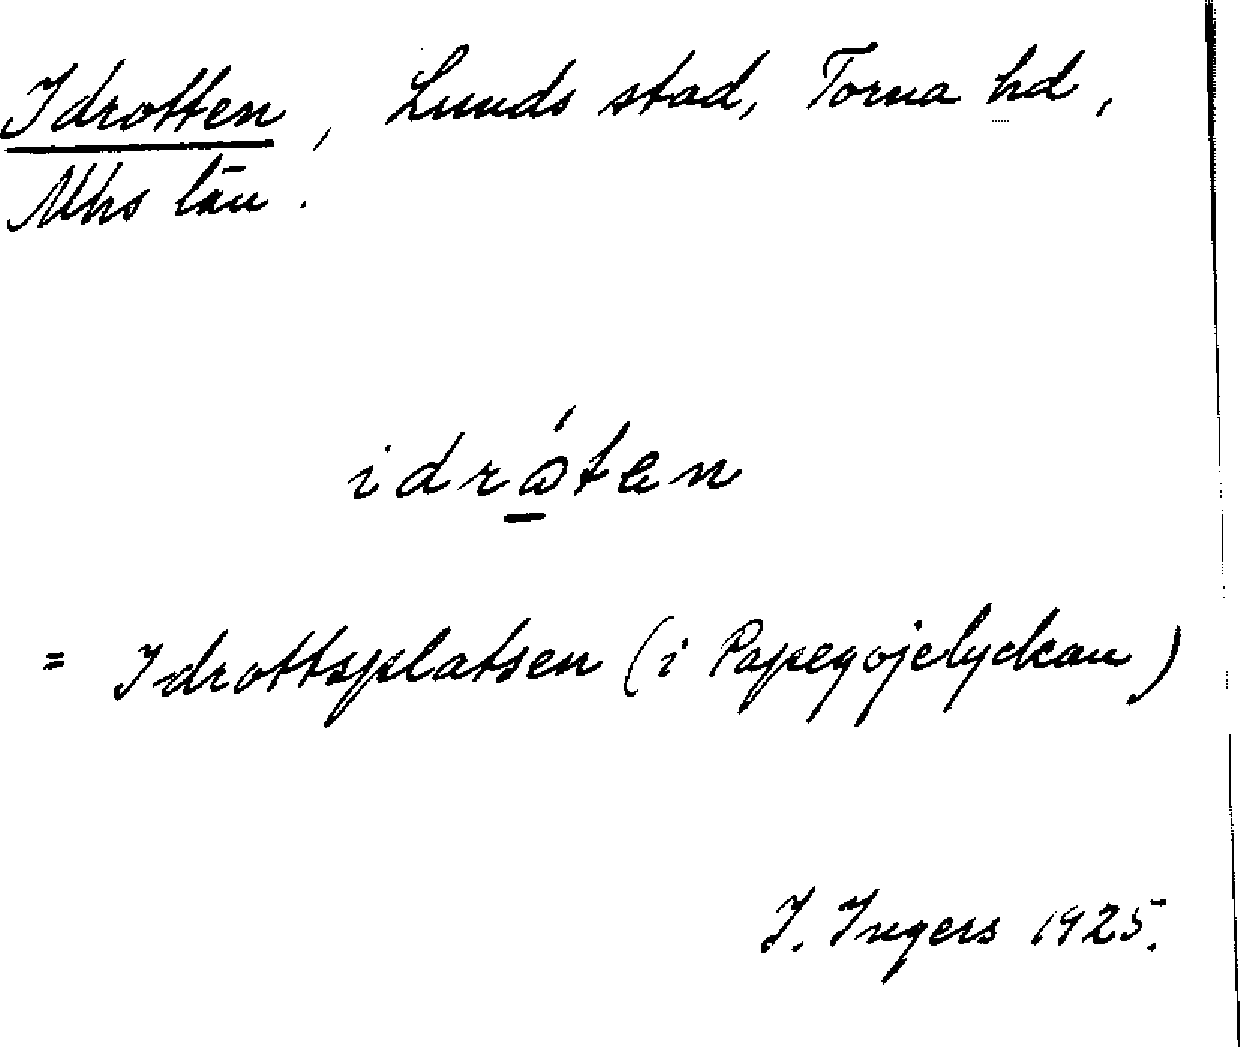 Idrotten, Lunds stad, Torna hd,
Mhs län.
idrås̀ten
= Idrottsplatsen (i Papegojelyckan)
I. Ingers 1925.